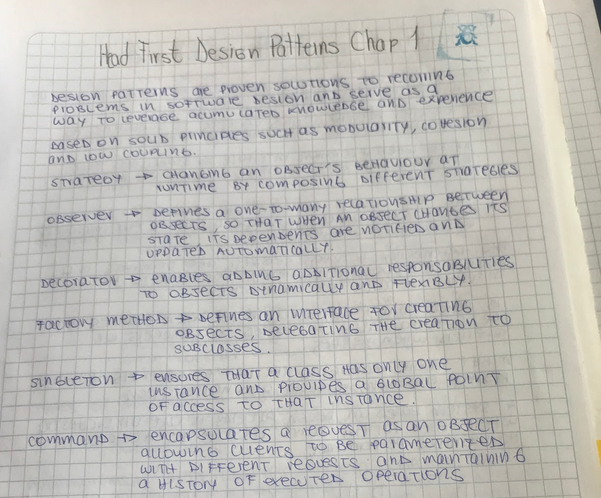 Head First Design Patterns Chap 1
DESIGN PATTERNS ARE PROVEN SOLUTIONS TO RECURRING
PROBLEMS IN SOFTWARE DESIGN AND SERVE AS A
WAY TO LEVERAGE ACUMULATED KNOWLEDGE AND EXPERIENCE
BASED ON SOLID PRINCIPLES SUCH AS MODULARITY, COHESION
AND LOW COUPLING.
STRATEGY → CHANGING AN OBJECT'S BEHAVIOUR AT
RUNTIME BY COMPOSING DIFFERENT STRATEGIES
OBSERVER → DEFINES A ONE-TO-MANY RELATIONSHIP BETWEEN
OBJECTS, SO THAT WHEN AN OBJECT CHANGES ITS
STATE, ITS DEPENDENTS ARE NOTIFIED AND
UPDATED AUTOMATICALLY.
DECORATOR → ENABLES ADDING ADDITIONAL RESPONSABILITIES
TO OBJECTS DYNAMICALLY AND FLEXIBLY.
FACTORY METHOD → DEFINES AN INTERFACE FOR CREATING
OBJECTS, DELEGATING THE CREATION TO
SUBCLASSES.
SINGLETON → ENSURES THAT A CLASS HAS ONLY ONE
INSTANCE AND PROVIDES A GLOBAL POINT
OF ACCESS TO THAT INSTANCE.
COMMAND → ENCAPSULATES A REQUEST AS AN OBJECT
ALLOWING CLIENTS TO BE PARAMETERIZED
WITH DIFFERENT REQUESTS AND MAINTAINING
A HISTORY OF EXECUTED OPERATIONS